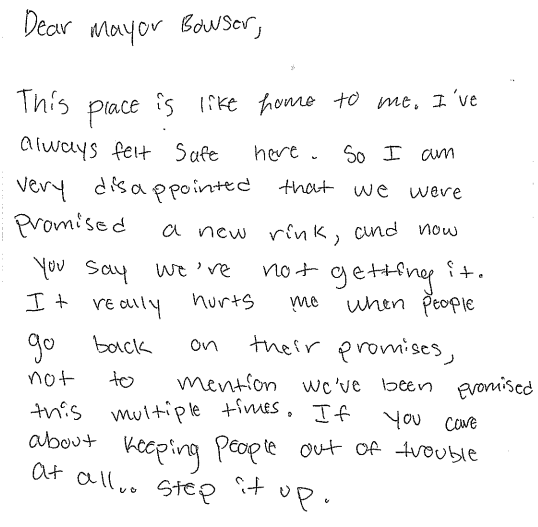 Dear Mayor Bowser,
This place is like home to me. I've
always felt safe here. So I am
very disappointed that we were
promised a new rink, and now
you say we're not getting it.
It really hurts me when people
go back on their promises,
not to mention we've been promised
this multiple times. If you care
about keeping people out of trouble
at all.. step it up.